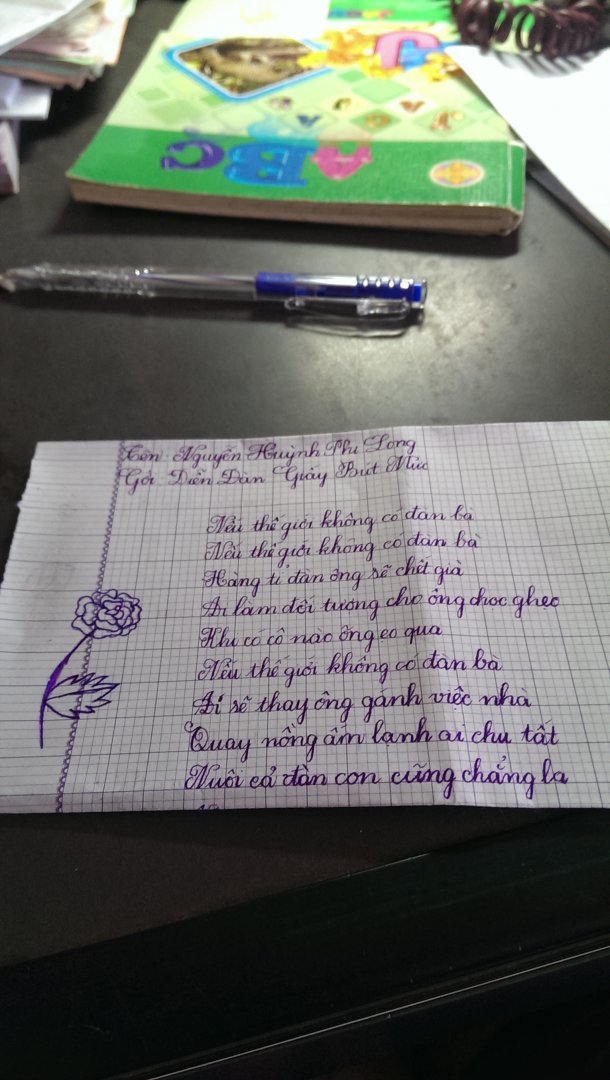 ABC
Tên: Nguyễn Huỳnh Phi Long
Gởi Diễn Đàn Giấy Bút Mực
Nếu thế giới không có đàn bà
Nếu thế giới không có đàn bà
Hàng tỉ đàn ông sẽ chết già
Ai làm đối tượng cho ông chọc ghẹo
Khi có cô nào õng ẹo qua
Nếu thế giới không có đàn bà
Ai sẽ thay ông gánh việc nhà
Quay nồng ấm lạnh ai chu tất
Nuôi cả đàn con cũng chẳng la